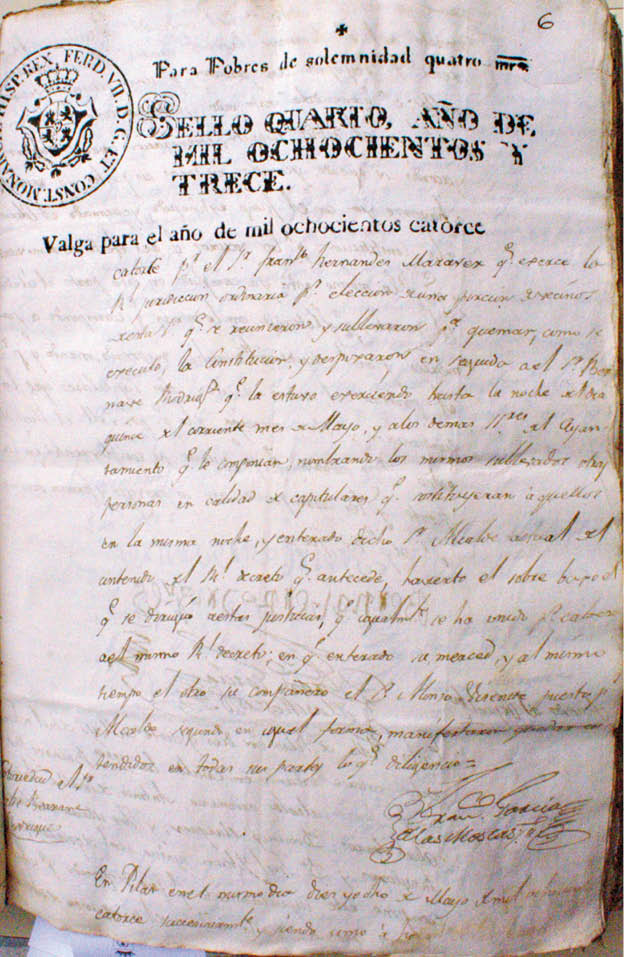 6
Para Pobres de solemnidad quatro mrs.
HISP. REX. FERD. VII. D. G. ET CONST. MONAR.
SELLO QUARTO, AÑO DE
MIL OCHOCIENTOS Y
TRECE.
Valga para el año de mil ochocientos catorce
catorce pr. el Sr. Franco. Hernandes q.e exerce la
Rl. jurisdiccion ordinaria pr. eleccion de una porcion de vecinos
q.e se reunieron y sullevaron pr. quemar, como se
executó, la Constitucion, y despusieron en seguida a el Sr.
q.e la estuvo exerciendo hasta la noche del dia
quince del corriente mes de Mayo, y a los demas Sres. del Ayun-
tamiento q.e le componian, nombrando los mismos sullevados otras
personas en calidad de capitulares q.e sostituyeran á aquellos
en la misma noche, y enterado dicho Sr. Alcalde actual del
contenido del Rl. decreto q.e antecede, haverto el sobre bajo el
q.e se dirijió a estas justicias, q.e igualmte. se ha unido pr. cabeza
a el mismo Rl. decreto; en q.e enterado su merced, y al mismo
tiempo el otro su compañero el Sr. Alonso puesto pr.
Alcalde segundo en igual forma, manifestaron quedar en-
tendidos en todas sus partes lo q.e diligencio=
Franco. Garcia
de las Moscas
En Pilas en el mismo dia dies y ocho de Mayo de mil ochocientos
catorce y siendo como á